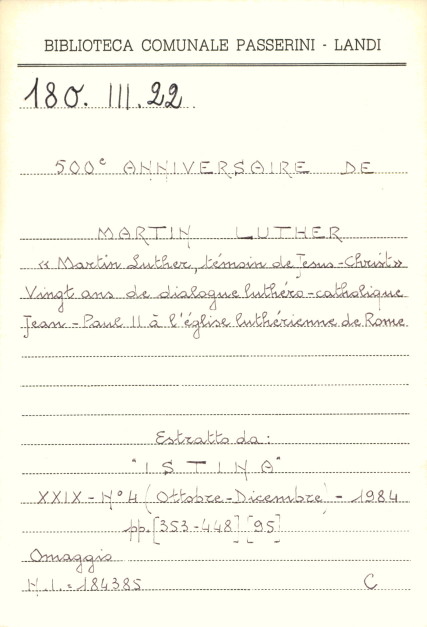 BIBLIOTECA COMUNALE PASSERINI - LANDI
180. III. 22.
500e ANNIVERSAIRE DE
MARTIN LUTHER
« Martin Luther, témoin de Jesus-Christ»
Vingt ans de dialogue luthéro-catholique
Jean-Paul II à l'église luthérienne de Rome
Estratto da:
"ISTINA"
XXIX - N° 4 (Ottobre-Dicembre) - 1984
pp. [353-448] [95]
Omaggio
N.I. = 184385 C